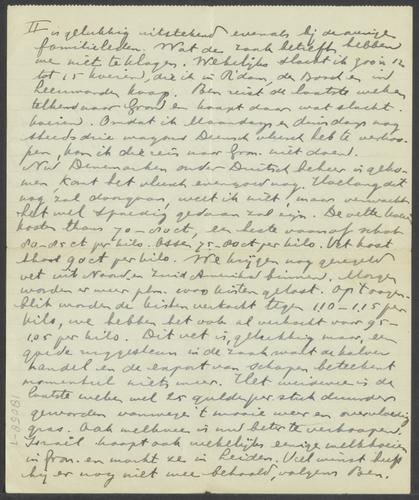 II is gelukkig uitstekend evenals bij de overige
familieleden. Wat de zaak betreft hebben
we niet te klagen. Wekelijks slacht ik zoo'n 12
tot 15 koeien, die ik in R'dam, den Bosch en in
Leeuwarden koop. Ben reist de laatste weken
telkens naar Gron. en koopt daar wat slacht-
koeien. Omdat ik Maandags en dinsdags nog
steeds drie wagons Deensch vleesch heb te verkoo-
pen, kan ik die reis naar Gron. niet doen.
Nu Denemarken onder Duitsch beheer is geko-
men komt het vleesch evengoed nog. Hoelang dit
nog zal doorgaan, weet ik niet, maar verwacht
het wel spoedig gedaan zal zijn. De vette koeien
kosten thans 70-80 ct, een beste vaars of schot
80-85 ct per kilo. Ossen 75-80 ct per kilo. Vet kost
90 ct per kilo. We krijgen nog geregeld
vet uit Noord en Zuid Amerika binnen. Morgen
worden er weer plm. kisten gelost. Op 't oogen-
blik worden de kisten verkocht tegen 1,10 - 1,15 per
kilo, we hebben het ook al verkocht voor 95-
1,05 per kilo. Dit vet is, gelukkig maar, een
goede ruggesteun in de zaak want de kalver
handel en de export van schapen beteekent
momenteel niets meer. Het weidevee is de
laatste weken wel gulden per stuk duurder
geworden vanwege 't mooie weer en overvloedig
gras. Ook melkvee is nu beter te verkoopen.
Israël koopt ook wekelijks eenige melkkoeien
in Gron. en markt ze in Leiden. Veel winst heeft
hij er nog niet mee behaald, volgens Ben.
18056-1